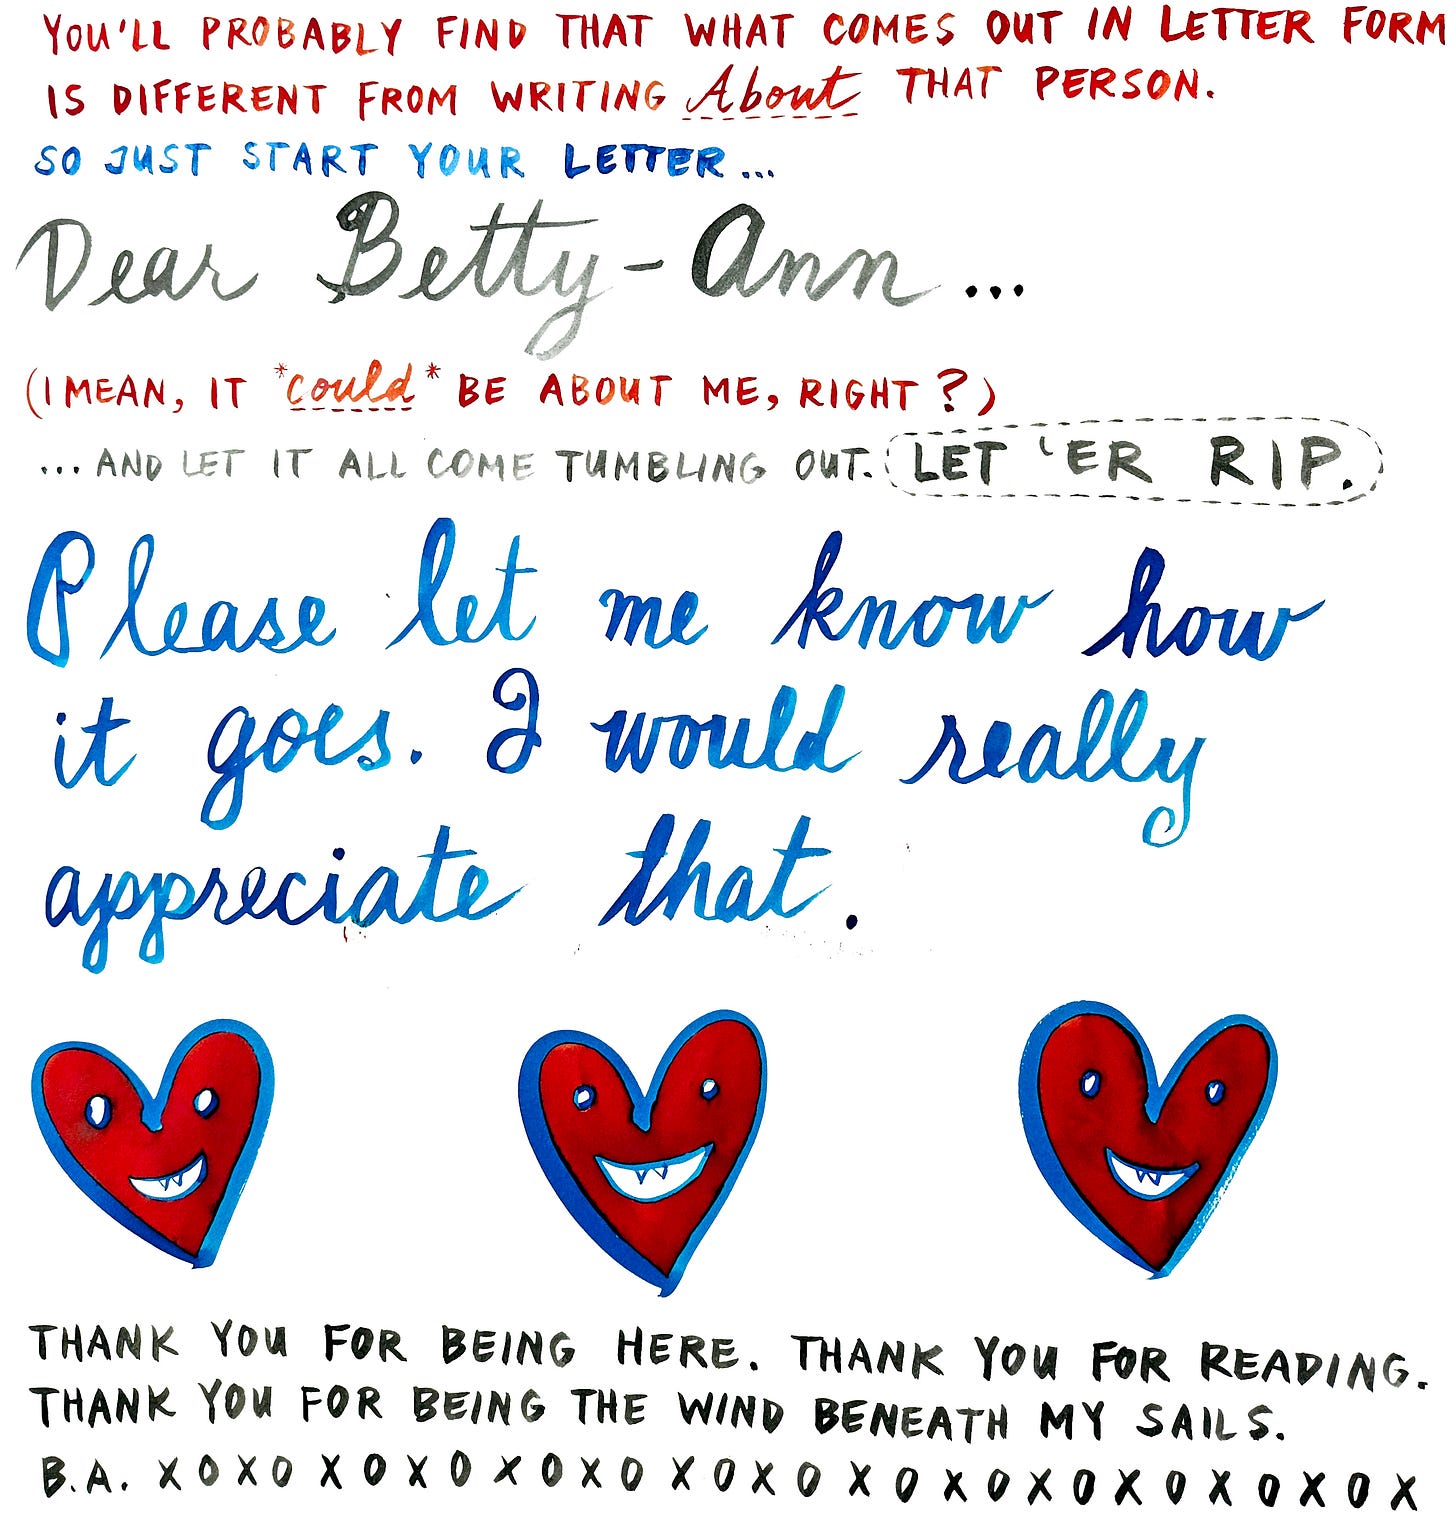 YOU'LL PROBABLY FIND THAT WHAT COMES OUT IN LETTER FORM
IS DIFFERENT FROM WRITING About THAT PERSON.
SO JUST START YOUR LETTER...
Dear Betty-Ann...
(I MEAN, IT *could* BE ABOUT ME, RIGHT?)
...AND LET IT ALL COME TUMBLING OUT. LET 'ER RIP.
Please let me know how
it goes. I would really
appreciate that.
THANK YOU FOR BEING HERE. THANK YOU FOR READING.
THANK YOU FOR BEING THE WIND BENEATH MY SAILS.
B.A. XOXOXOXOXOXOXOXOXOXOXOXOXOXOX